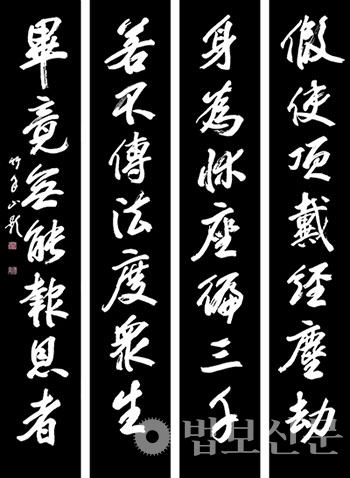 假使頂戴經塵劫
身為牀座徧三千
若不傳法度衆生
畢竟無能報恩者
법보신문